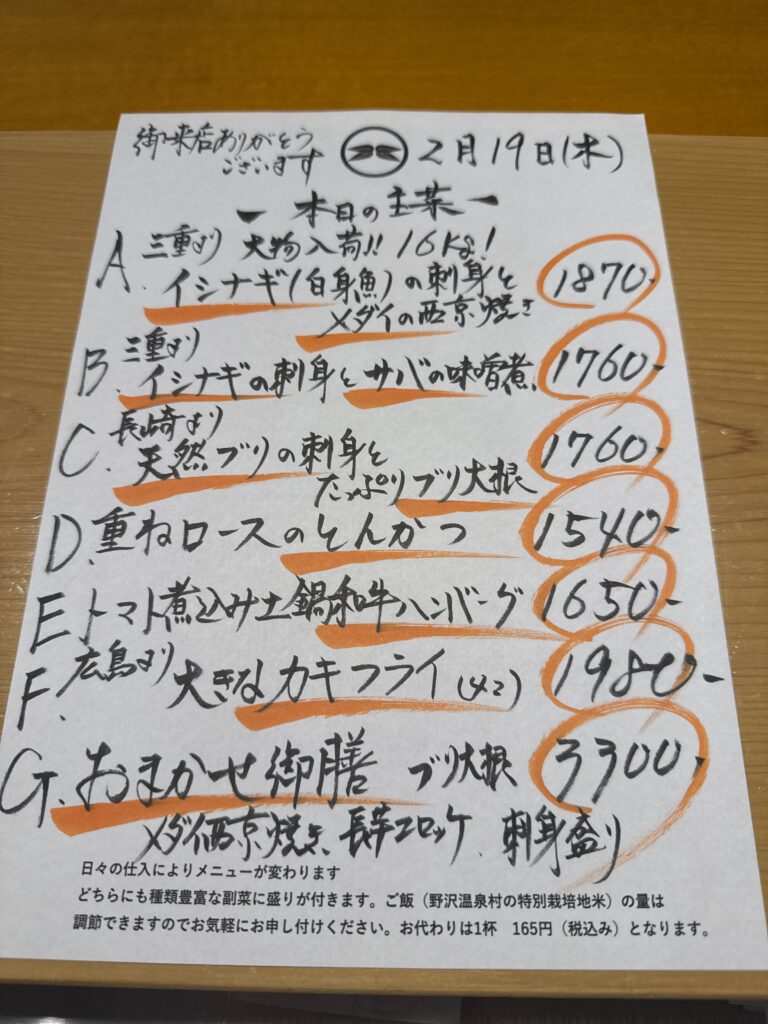 御来店ありがとう
ございます
2月19日(木)
ー 本日の主菜 ー
A. 三重より 大物入荷!! 16kg!
イシナギ(白身魚)の刺身と
メダイの西京焼き
1870-
B. 三重より
イシナギの刺身とサバの味噌煮
1760-
C. 長崎より
天然ブリの刺身と
たっぷりブリ大根
1760-
D. 重ねロースのとんかつ 1540-
E トマト煮込み土鍋和牛ハンバーグ 1650-
F. 広島より 大きなカキフライ(4コ) 1980-
G. おまかせ御膳 ブリ大根 3300-
メダイ西京焼き、長芋コロッケ、刺身盛り
日々の仕入によりメニューが変わります
どちらにも種類豊富な副菜に盛りが付きます。ご飯（野沢温泉村の特別栽培地米）の量は
調節できますのでお気軽にお申し付けください。お代わりは1杯　165円（税込み）となります。